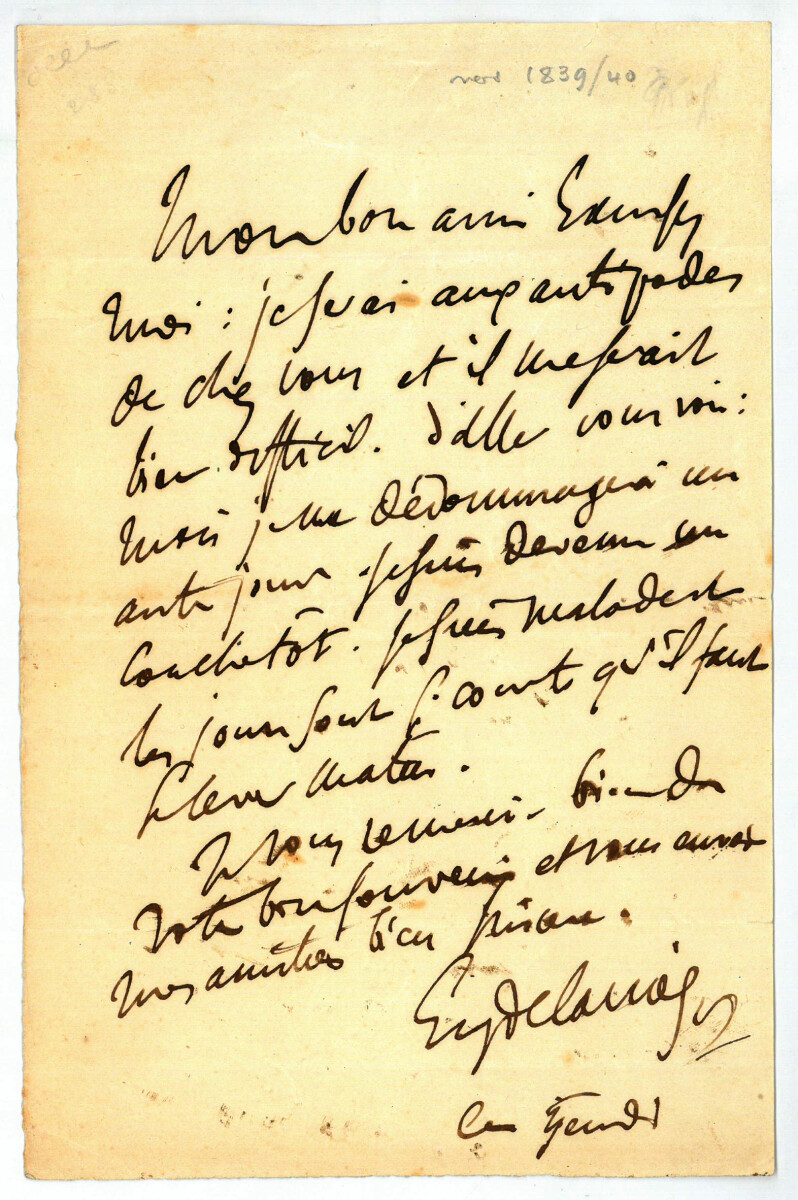 nov 1839/40
Mon bon ami Excusez
moi : je serai aux antipodes
de chez vous et il me serait
bien difficil. d'aller vous voir :
mais je me dédommagerai un
autre jour. Je suis devenu un
couchetôt. Je suis malade et
les jours sont si courts qu'il faut
se lever matin.
Je vous remercie bien de
votre bon souvenir et vous envoie
mes amitiés bien sincères.
Eug Delacroix
ce Jeudi